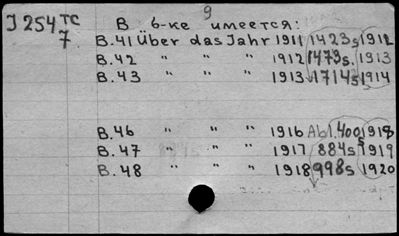 9
J 254 TC
7
В б-ке имеется:
B.41 Über das Jahr 1911 1423s 1912
B.42 " " " 1912 1473s. 1913
B.43 " " " 1913 1714s 1914
B.46 " " " 1916 Abl. 400s 1918
B.47 " " " 1917 884s 1919
B.48 " " " 1918 998s 1920